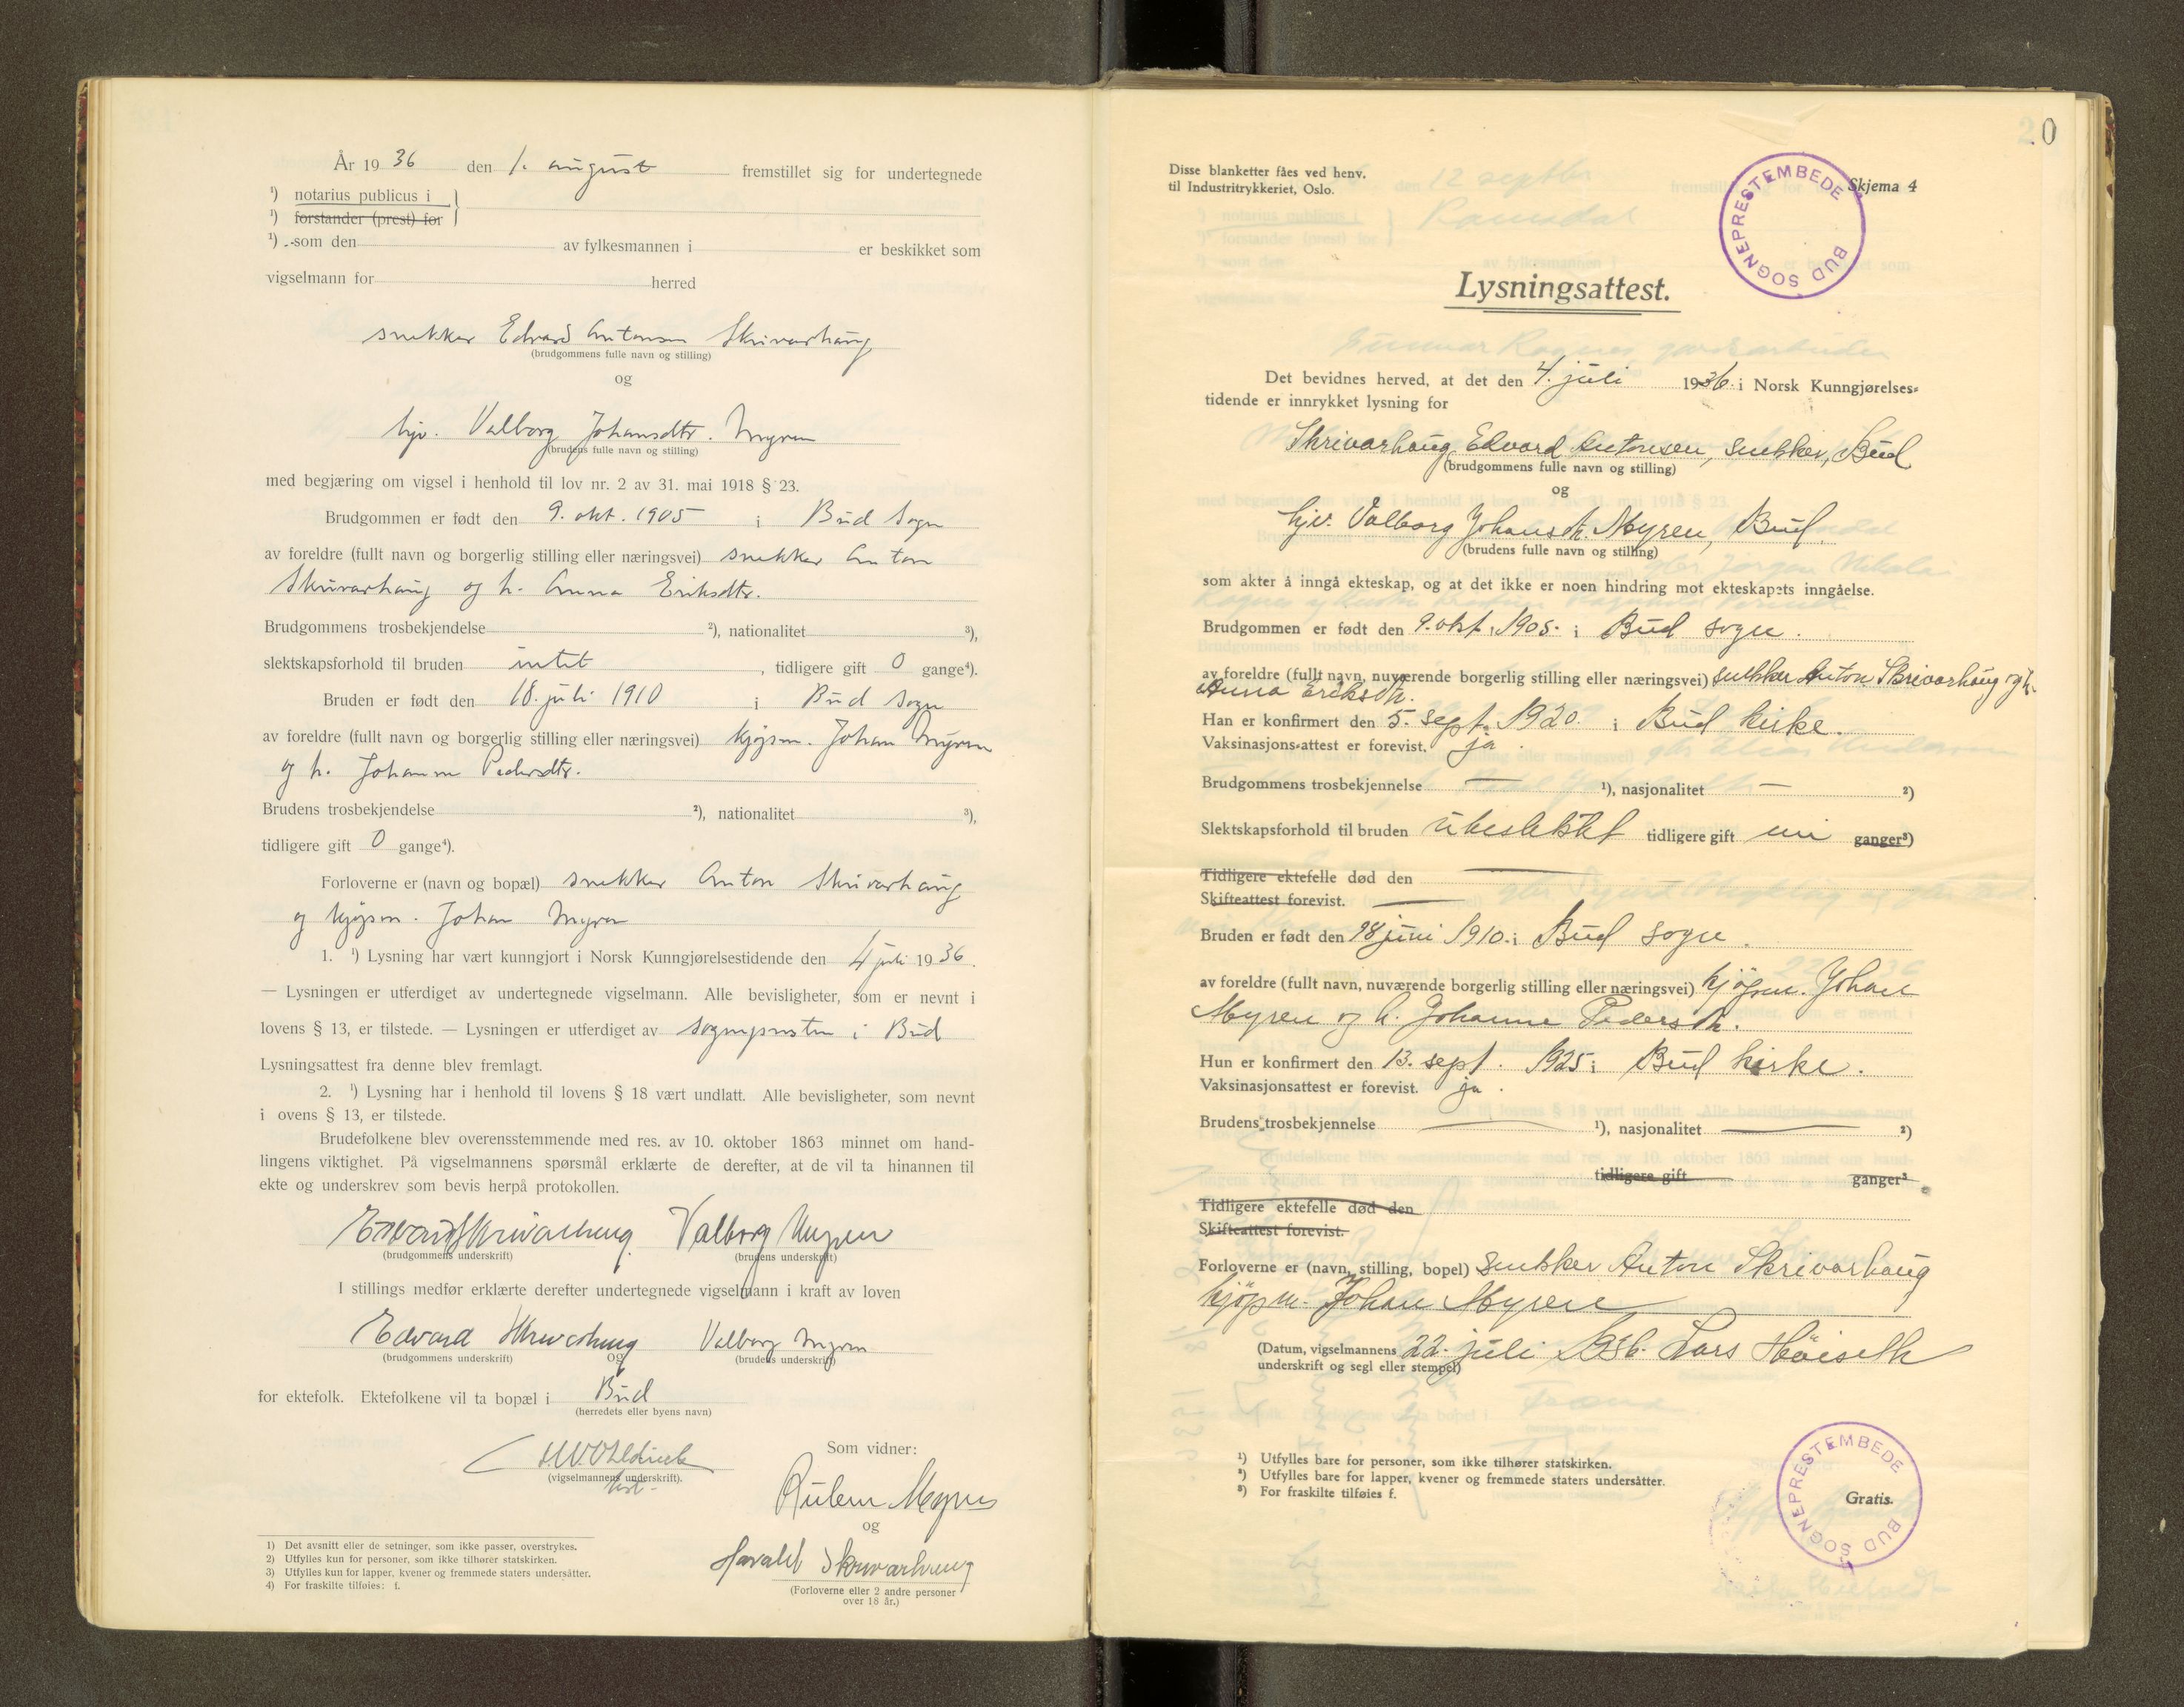 År 19 36 den 1. august fremstillet sig for undertegnede
¹) notarius publicus i
¹) forstander (prest) for
¹) som den av fylkesmannen i er beskikket som
vigselmann for herred
snekker Edvard Antonsen Skrivarhaug
(brudgommens fulle navn og stilling)
og
hjv. Valborg Johansdtr. Myren
(brudens fulle navn og stilling)
med begjæring om vigsel i henhold til lov nr. 2 av 31. mai 1918 § 23.
Brudgommen er født den 9. okt. 1905 i Bud sogn
av foreldre (fullt navn og borgerlig stilling eller næringsvei) snekker Anton
Skrivarhaug og h. Anna Eriksdtr.
Brudgommens trosbekjendelse ²), nationalitet ³),
slektskapsforhold til bruden intet, tidligere gift 0 gange⁴).
Bruden er født den 18. juli 1910 i Bud sogn
av foreldre (fullt navn og borgerlig stilling eller næringsvei) kjøpm. Johan Myren
og h. Johanne Pedersdtr.
Brudens trosbekjendelse ²), nationalitet ³),
tidligere gift 0 gange⁴).
Forloverne er (navn og bopæl) snekker Anton Skrivarhaug
og kjøpm. Johan Myren
1. ¹) Lysning har vært kunngjort i Norsk Kunngjørelsestidende den 4 juli 19 36.
— Lysningen er utferdiget av undertegnede vigselmann. Alle bevisligheter, som er nevnt i
lovens § 13, er tilstede. — Lysningen er utferdiget av sognepresten i Bud
Lysningsattest fra denne blev fremlagt.
2. ¹) Lysning har i henhold til lovens § 18 vært undlatt. Alle bevisligheter, som nevnt
i ovens § 13, er tilstede.
Brudefolkene blev overensstemmende med res. av 10. oktober 1863 minnet om hand-
lingens viktighet. På vigselmannens spørsmål erklærte de derefter, at de vil ta hinannen til
ekte og underskrev som bevis herpå protokollen.
Edvard Skrivarhaug Valborg Myren
(brudgommens underskrift) (brudens underskrift)
I stillings medfør erklærte derefter undertegnede vigselmann i kraft av loven
Edvard Skrivarhaug og Valborg Myren
(brudgommens underskrift) (brudens underskrift)
for ektefolk. Ektefolkene vil ta bopæl i Bud
(herredets eller byens navn)
Som vidner:
(vigselmannens underskrift).
Myren
og
Harald Skrivarhaug
(Forloverne eller 2 andre personer
over 18 år.)
1) Det avsnitt eller de setninger, som ikke passer, overstrykes.
2) Utfylles kun for personer, som ikke tilhører statskirken.
3) Utfylles kun for lapper, kvener og fremmede staters undersåtter.
4) For fraskilte tilføies: f.
20
Disse blanketter fåes ved henv.
til Industritrykkeriet, Oslo.
Skjema 4
BUD SOGNEPRESTEMBEDE
Lysningsattest.
Det bevidnes herved, at det den 4. juli 1936. i Norsk Kunngjørelses-
tidende er innrykket lysning for
Skrivarhaug Edvard Antonsen, snekker, Bud
(brudgommens fulle navn og stilling)
og
hjv. Valborg Johansdtr. Myren, Bud.
(brudens fulle navn og stilling)
som akter å inngå ekteskap, og at det ikke er noen hindring mot ekteskapets inngåelse.
Brudgommen er født den 9. okt. 1905. i Bud sogn.
av foreldre (fullt navn, nuværende borgerlig stilling eller næringsvei) snekker Anton Skrivarhaug og h.
Anna Eriksdtr.
Han er konfirmert den 5. sept. 1920. i Bud kirke.
Vaksinasjons-attest er forevist. ja.
Brudgommens trosbekjennelse — ¹), nasjonalitet — ²)
Slektskapsforhold til bruden ubeslektet tidligere gift nei ganger³)
Tidligere ektefelle død den —
Skifteattest forevist. —
Bruden er født den 18 juni 1910. i Bud sogn.
av foreldre (fullt navn, nuværende borgerlig stilling eller næringsvei) kjøpm. Johan
Myren og h. Johanne Pedersdtr.
Hun er konfirmert den 13. sept. 1925 i Bud kirke.
Vaksinasjonsattest er forevist. ja.
Brudens trosbekjennelse — ¹), nasjonalitet — ²)
tidligere gift ganger³
Tidligere ektefelle død den
Skifteattest forevist.
Forloverne er (navn, stilling, bopel) snekker Anton Skrivarhaug
kjøpm. Johan Myren
(Datum, vigselmannens 22. juli 1936. Lars Höiseth
underskrift og segl eller stempel)
¹) Utfylles bare for personer, som ikke tilhører statskirken.
²) Utfylles bare for lapper, kvener og fremmede staters undersåtter.
³) For fraskilte tilføies f.
BUD SOGNEPRESTEMBEDE
Gratis.